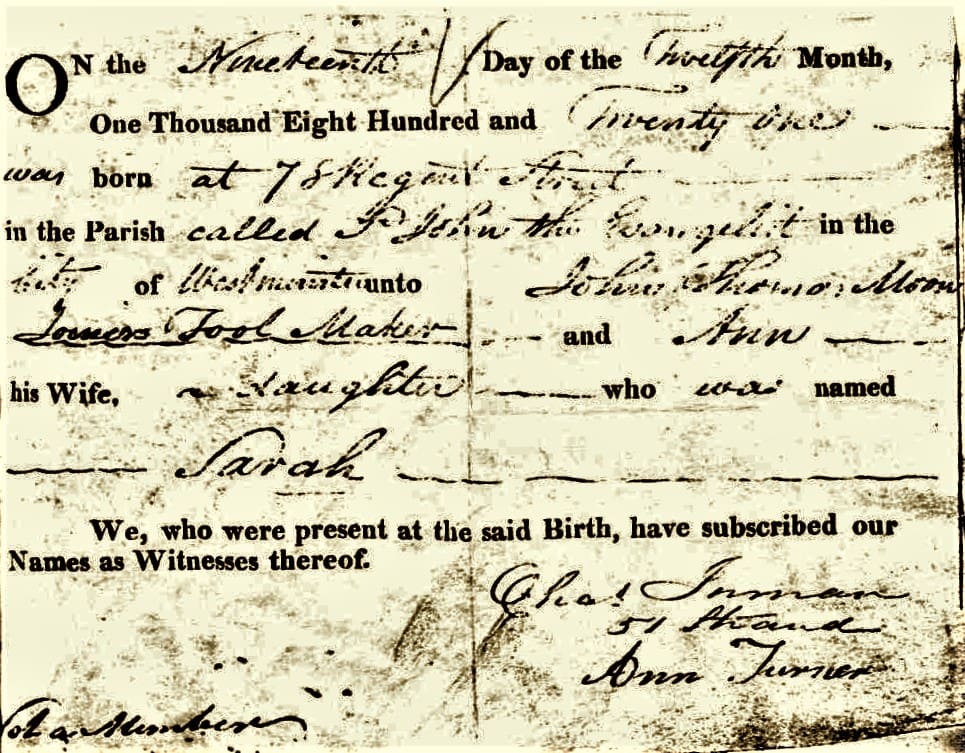 ON the Nineteenth Day of the Twelfth Month,
One Thousand Eight Hundred and Twenty One
was born at 78 Regent Street
in the Parish called St John the Evangelist in the
City of Westminster unto John Thomas Moon
Joiners Tool Maker and Ann
his Wife, a daughter who was named
Sarah
We, who were present at the said Birth, have subscribed our
Names as Witnesses thereof.
Chas Inman
51 Strand
Ann Turner
Not a Member